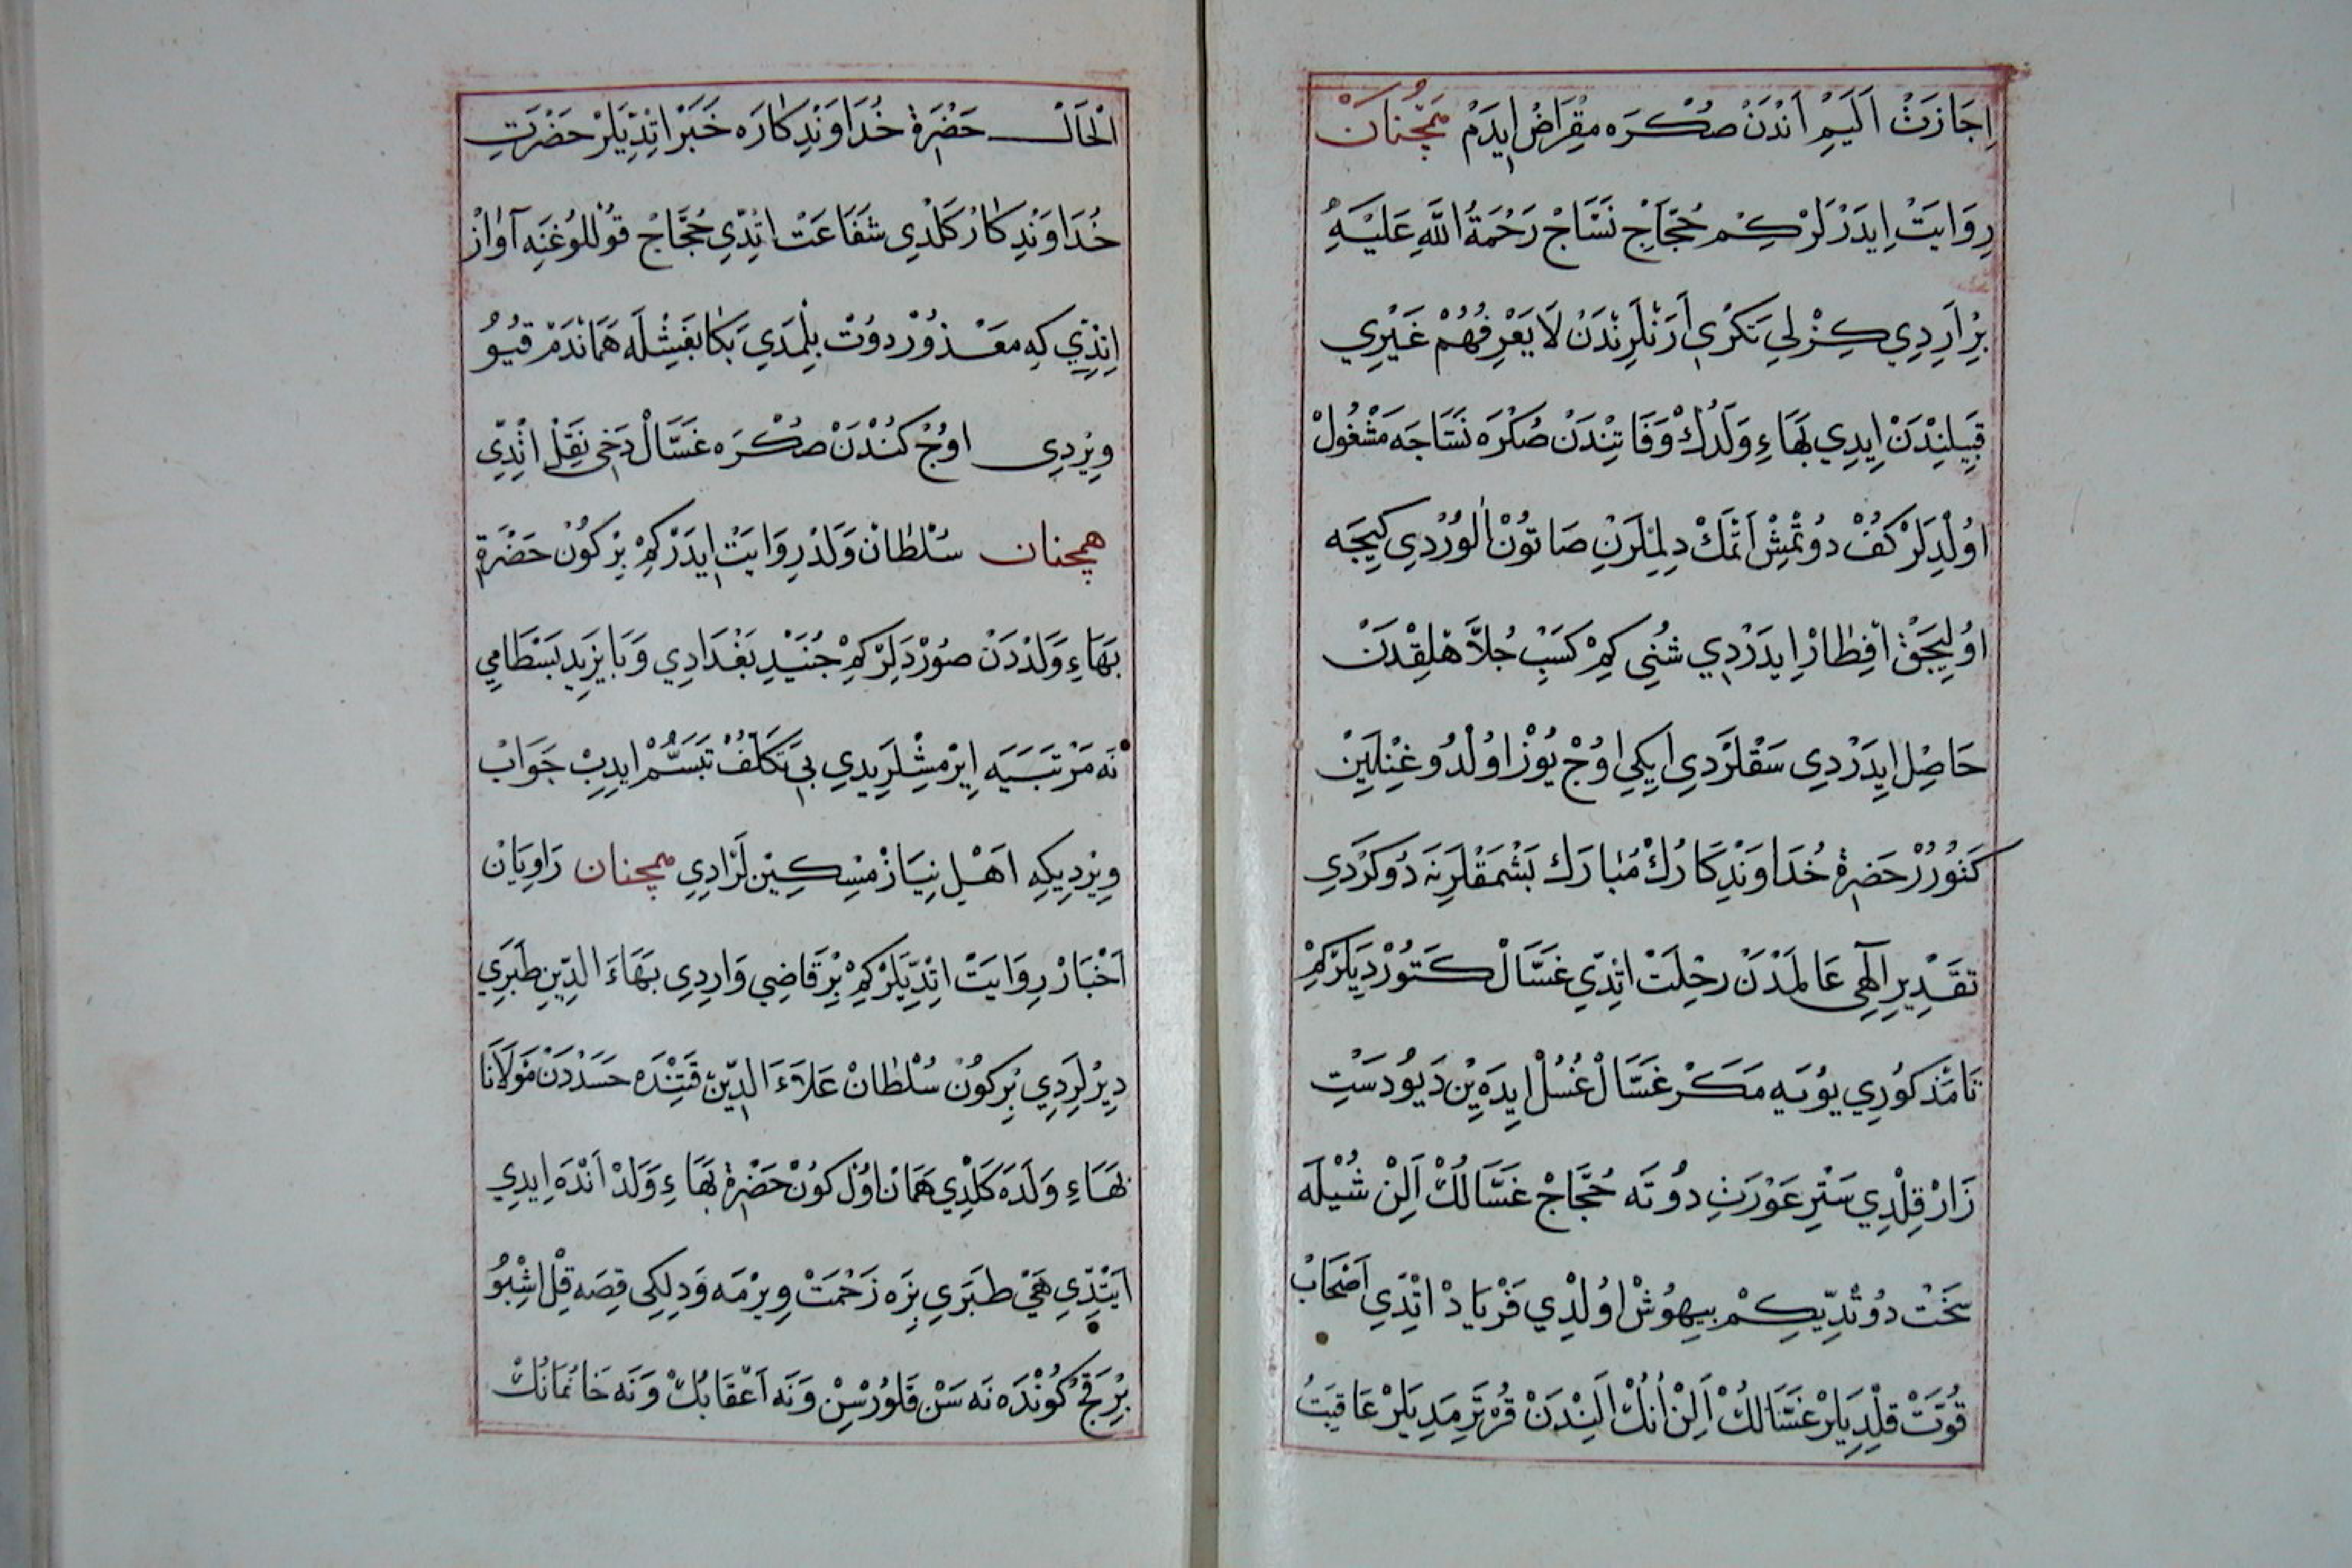 اِجَازَتْ اَلَيِمْ اَنْدَنْ صُكْرَه مِقْرَاضْ ايِدَمْ همچُنانْ
رِوَايَتْ اِيدَرْلَرْ كِمْ حُجَّاجْ نَسَّاجْ رَحْمَةُ اللَّهِ عَلَيْهِ
بِرْ اَرِدِي كِزْلِي تَكْرِى اَرَنْلَرِنْدَنْ لَا يَعْرِفُهُمْ غَيْرِي
قَبِيلِنْدَنْ اِيدِي بَهَاءِ وَلَدُكْ وَفَاتِنْدَنْ صُكْرَه نَسَّاجَه مَشْغُولْ
اوُلْدِلَرْ كَفُّ دوُتْمِشْ اَتْمَكْ دِلِمْلَرِنِ صَاتُونْ الُورْدِي كِيجَه
اوُلِيجَقْ اِفْطَارْ اِيدَرْدِي شُنِي كِمْ كَسْبِ جُلاَّهْلِقْدَنْ
حَاصِلْ اِيدَرْدِى سَقْلَرْدِي اِيكِي اوُجْ يُوزْ اوُلْدُوغِنْلَيِنْ
كَتُورُرْ حَضْرَةِ خُدَاوَنْدِكَارُكْ مُبَارَكْ بَشْمَقْلَرِنَه دُوكَرْدِي
تَقْدِيرِ اِلَهِى عَالَمْدَنْ رِحْلَتْ اتِدِّي غَسَّالْ كَتُورْدِيلَرْ كِمْ
تَا مَذْكُورِي يُويَه مَكَرْ غَسَّالْ غُسُلْ ايِدَه يِنْ دَيُو دَسْتِ
زَارْ قِلْدِي سَتْرِ عَوْرَتِ دُوتَه حُجَّاجْ غَسَّالُكْ اَلِنْ شُيْلَه
سَخَتْ دُوتْدِيكِمْ بِيهُوشْ اوُلْدِي فَرْيَادْ اتِدِي اَصْحَابْ
قُوَّتْ قِلْدِيلَرْ غَسَّالُكْ اَلِنْ اُنُكْ اَلِنْدَنْ قُرْتَرِمَدِيلَرْ عَاقِبَتُ
الْحَالْ حَضْرَةِ خُدَاوَنْدِكَارَه خَبَرْ اتِدِّيلَرْ حَضْرَتِ
خُدَاوَنْدِكَارْ كَلْدِي شَفَاعَتْ اتِدِّي حُجَّاجْ قُوللُوغِنَه آوَازْ
اتِدِّي كِه مَعْذُورْ دوُتْ بِلْمَدِي بَكَا بَغِشْلَه هَمَانْدَمْ قيُو
وِيرْدِى اوُجْ كُنْدَنْ صُكْرَه غَسَّالْ دَخِى نَقِلْ اتِدِّى
همچنان سُلْطَانْ وَلَدْ رِوَايَتْ اِيدَرْ كِمْ بِرْ كُونْ حَضْرَةِ
بَهَاءِ وَلَدْدَنْ صُورْدِلَرْ كِمْ جُنَيْدِ بَغْدَادِي وَ بَايَزِيدِ بَسْطَامِي
نَه مَرْتَبَيَه اِيرْمِشْلَرِيدِي بِى تَكَلُّفْ تَبَسُّمْ ايِدِبْ جَوَابْ
وِيرْدِيكِه اَهْلِ نِيَازْ مِسْكِينْلَرَادِي همچنان رَاوِيَانْ
اَخْبَارْ رِوَايَتْ اتِدِّيلَرْ كِمْ بِرْ قَاضِي وَارِدِي بَهَاءَ الدِّينِ طَبَرِي
دِيرْلَرِدِي بِرْ كُونْ سُلْطَانْ عَلَاءَ الدِّينْ قَتِنْدَه حَسَدْدَنْ مَوْلَانَا
بَهَاءِ وَلَدَه كَلْدِي هَمَانْ اوُلْ كُونْ حَضْرَةِ بَهَاءِ وَلَدْ اَنْدَه اِيدِي
ايَتْدِّي هَيْ طَبَرِي بِزَه زَحْمَتْ وِيرْمَه وَ دِلِكِى قِصَه قِلْ اشْبُو
بِرْقَجْ كُونْدَه نَه سَنْ قَلُورْسِنْ وَ نَه اَعْقَابُكْ وَ نَه خَانُمَانُكْ